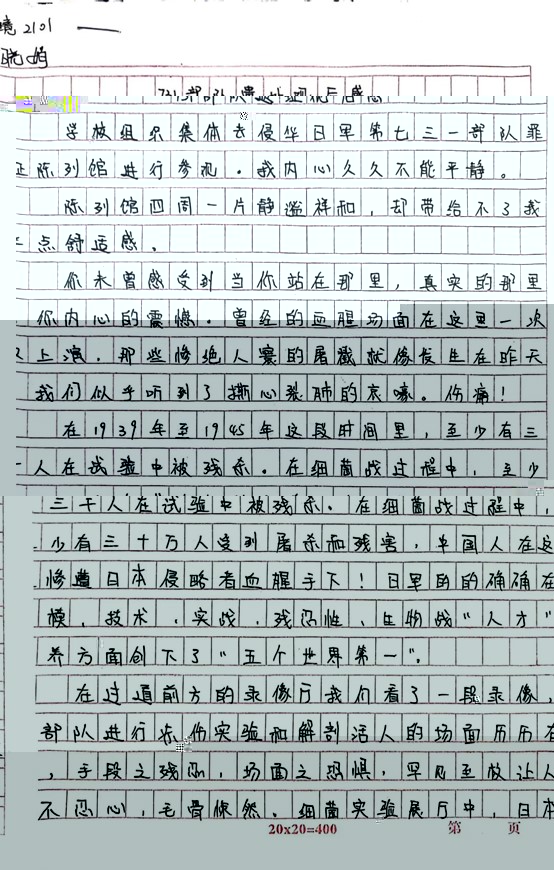 境2101
731部队遗址
学校组织集体去侵华日军第七三一部队罪
证陈列馆进行参观。我内心久久不能平静。
陈列馆四周一片静谧祥和，却带给不了我
点舒适感。
你未曾感受到当你站在那里，真实的那里
你内心的震憾。曾经的血腥场面在这里一次
上演，那些惨绝人寰的屠戮就像发生在昨天
我们似乎听到了撕心裂肺的哀嚎。伤痛！
在1939年至1945年这段时间里，至少有三
人在试验中被残杀。在细菌战过程中，至少
三千人在“试验中被残杀。在细菌战过程中，
少有三十万人受到屠杀和残害，中国人在这
惨遭日本侵略者血腥手下！日军的的确确在
模、技术、实战、残忍性、生物战“人才”
养方面创下了“五个世界第一”。
在过道前方的录像厅我们看了一段录像，
部队进行冻伤实验和解剖活人的场面历历在
，手段之残忍，场面之恐惧，罕见至极让人
不忍心，毛骨悚然。细菌实验展厅中，日本
20x20=400 第 页